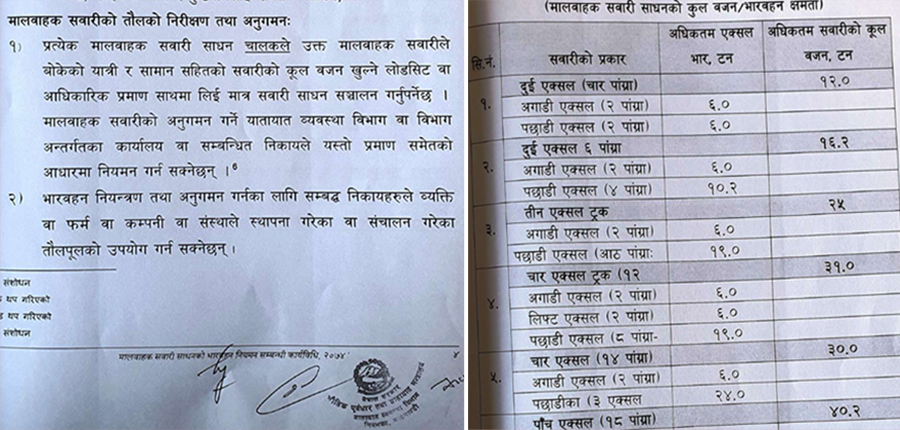 मालवाहक सवारीको तौलको निरीक्षण तथा अनुगमनः
१) प्रत्येक मालवाहक सवारी साधन चालकले उक्त मालवाहक सवारीले
बोकेको यात्री र सामान सहितको सवारीको कूल वजन खुल्ने लोडसिट वा
आधिकारिक प्रमाण साथमा लिई मात्र सवारी साधन सञ्चालन गर्नुपर्नेछ ।
मालवाहक सवारीको अनुगमन गर्ने यातायात व्यवस्था विभाग वा विभाग
अन्तर्गतका कार्यालय वा सम्बन्धित निकायले यस्तो प्रमाण समेतको
आधारमा नियमन गर्न सक्नेछन् ।⁶
२) भारवहन नियन्त्रण तथा अनुगमन गर्नका लागि सम्बद्ध निकायहरुले व्यक्ति
वा फर्म वा कम्पनी वा संस्थाले स्थापना गरेका वा संचालन गरेका
तौलपूलको उपयोग गर्न सक्नेछन् ।
संशोधन
थप गरिएको
थप गरिएको
संशोधन
मालवाहक सवारी साधनको भारवहन नियमन सम्बन्धी कार्यविधि, २०७४ ४
नेपाल सरकार
(मालवाहक सवारी साधनको कुल वजन/भारवहन क्षमता)
सि.नं. सवारीको प्रकार अधिकतम एक्सल भार, टन अधिकतम सवारीको कूल वजन, टन
१. दुई एक्सल (चार पांग्रा) १२.०
अगाडी एक्सल (२ पांग्रा) ६.०
पछाडी एक्सल (२ पांग्रा) ६.०
२. दुई एक्सल ६ पांग्रा १६.२
अगाडी एक्सल (२ पांग्रा) ६.०
पछाडी एक्सल (४ पांग्रा) १०.२
३. तीन एक्सल ट्रक २५
अगाडी एक्सल (२ पांग्रा) ६.०
पछाडी एक्सल (आठ पाग्राः १९.०
४. चार एक्सल ट्रक (१२ ३१.०
अगाडी एक्सल (२ पांग्रा) ६.०
लिफ्ट एक्सल (२ पांग्रा) ६.०
पछाडी एक्सल (८ पांग्रा- १९.०
५. चार एक्सल (१४ पांग्रा) ३०.०
अगाडी एक्सल (२ पांग्रा) ६.०
पछाडीका (३ एक्सल २४.०
पाँच एक्सल (१८ पांग्रा) ४०.२